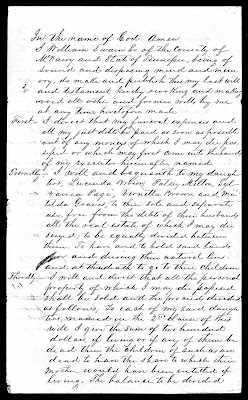 In the name of God Amen
I William Swain Sr of the County of
McNairy and State of Tennessee, being of
sound and disposing mind and mem-
ory, do make and publish this my last will
and testament hereby revoking and making
void all other and former wills by me
at any time heretofore made
First. I direct that my funeral expenses and
all my just debts be paid as soon as possible
out of any monies of which I may die posses-
sed or which may first come into the hands
of my executor hereinafter named
Secondly. I will and bequeath to my daugh-
ters, Lucinda Patsy
and Ma-
tilda Graves, to their sole and separate
use, free from the debt of their husbands
all the real estate of which I may die
seized, to be equally divided between
them. To have and to hold said lands
for and during their natural lives
and at their death to go to their children
Thirdly. I will and direct that all the personal
property of which I may die possessed
shall be sold and the proceeds divided
as follows, To each of my said daugh-
ters, named in the 2nd Clause of this
will I give the sum of two hundred
dollars, if living or if any of them be
dead then the children of such as are
dead to have the share to which their
mother would have been entitled if
living. The balance to be divided